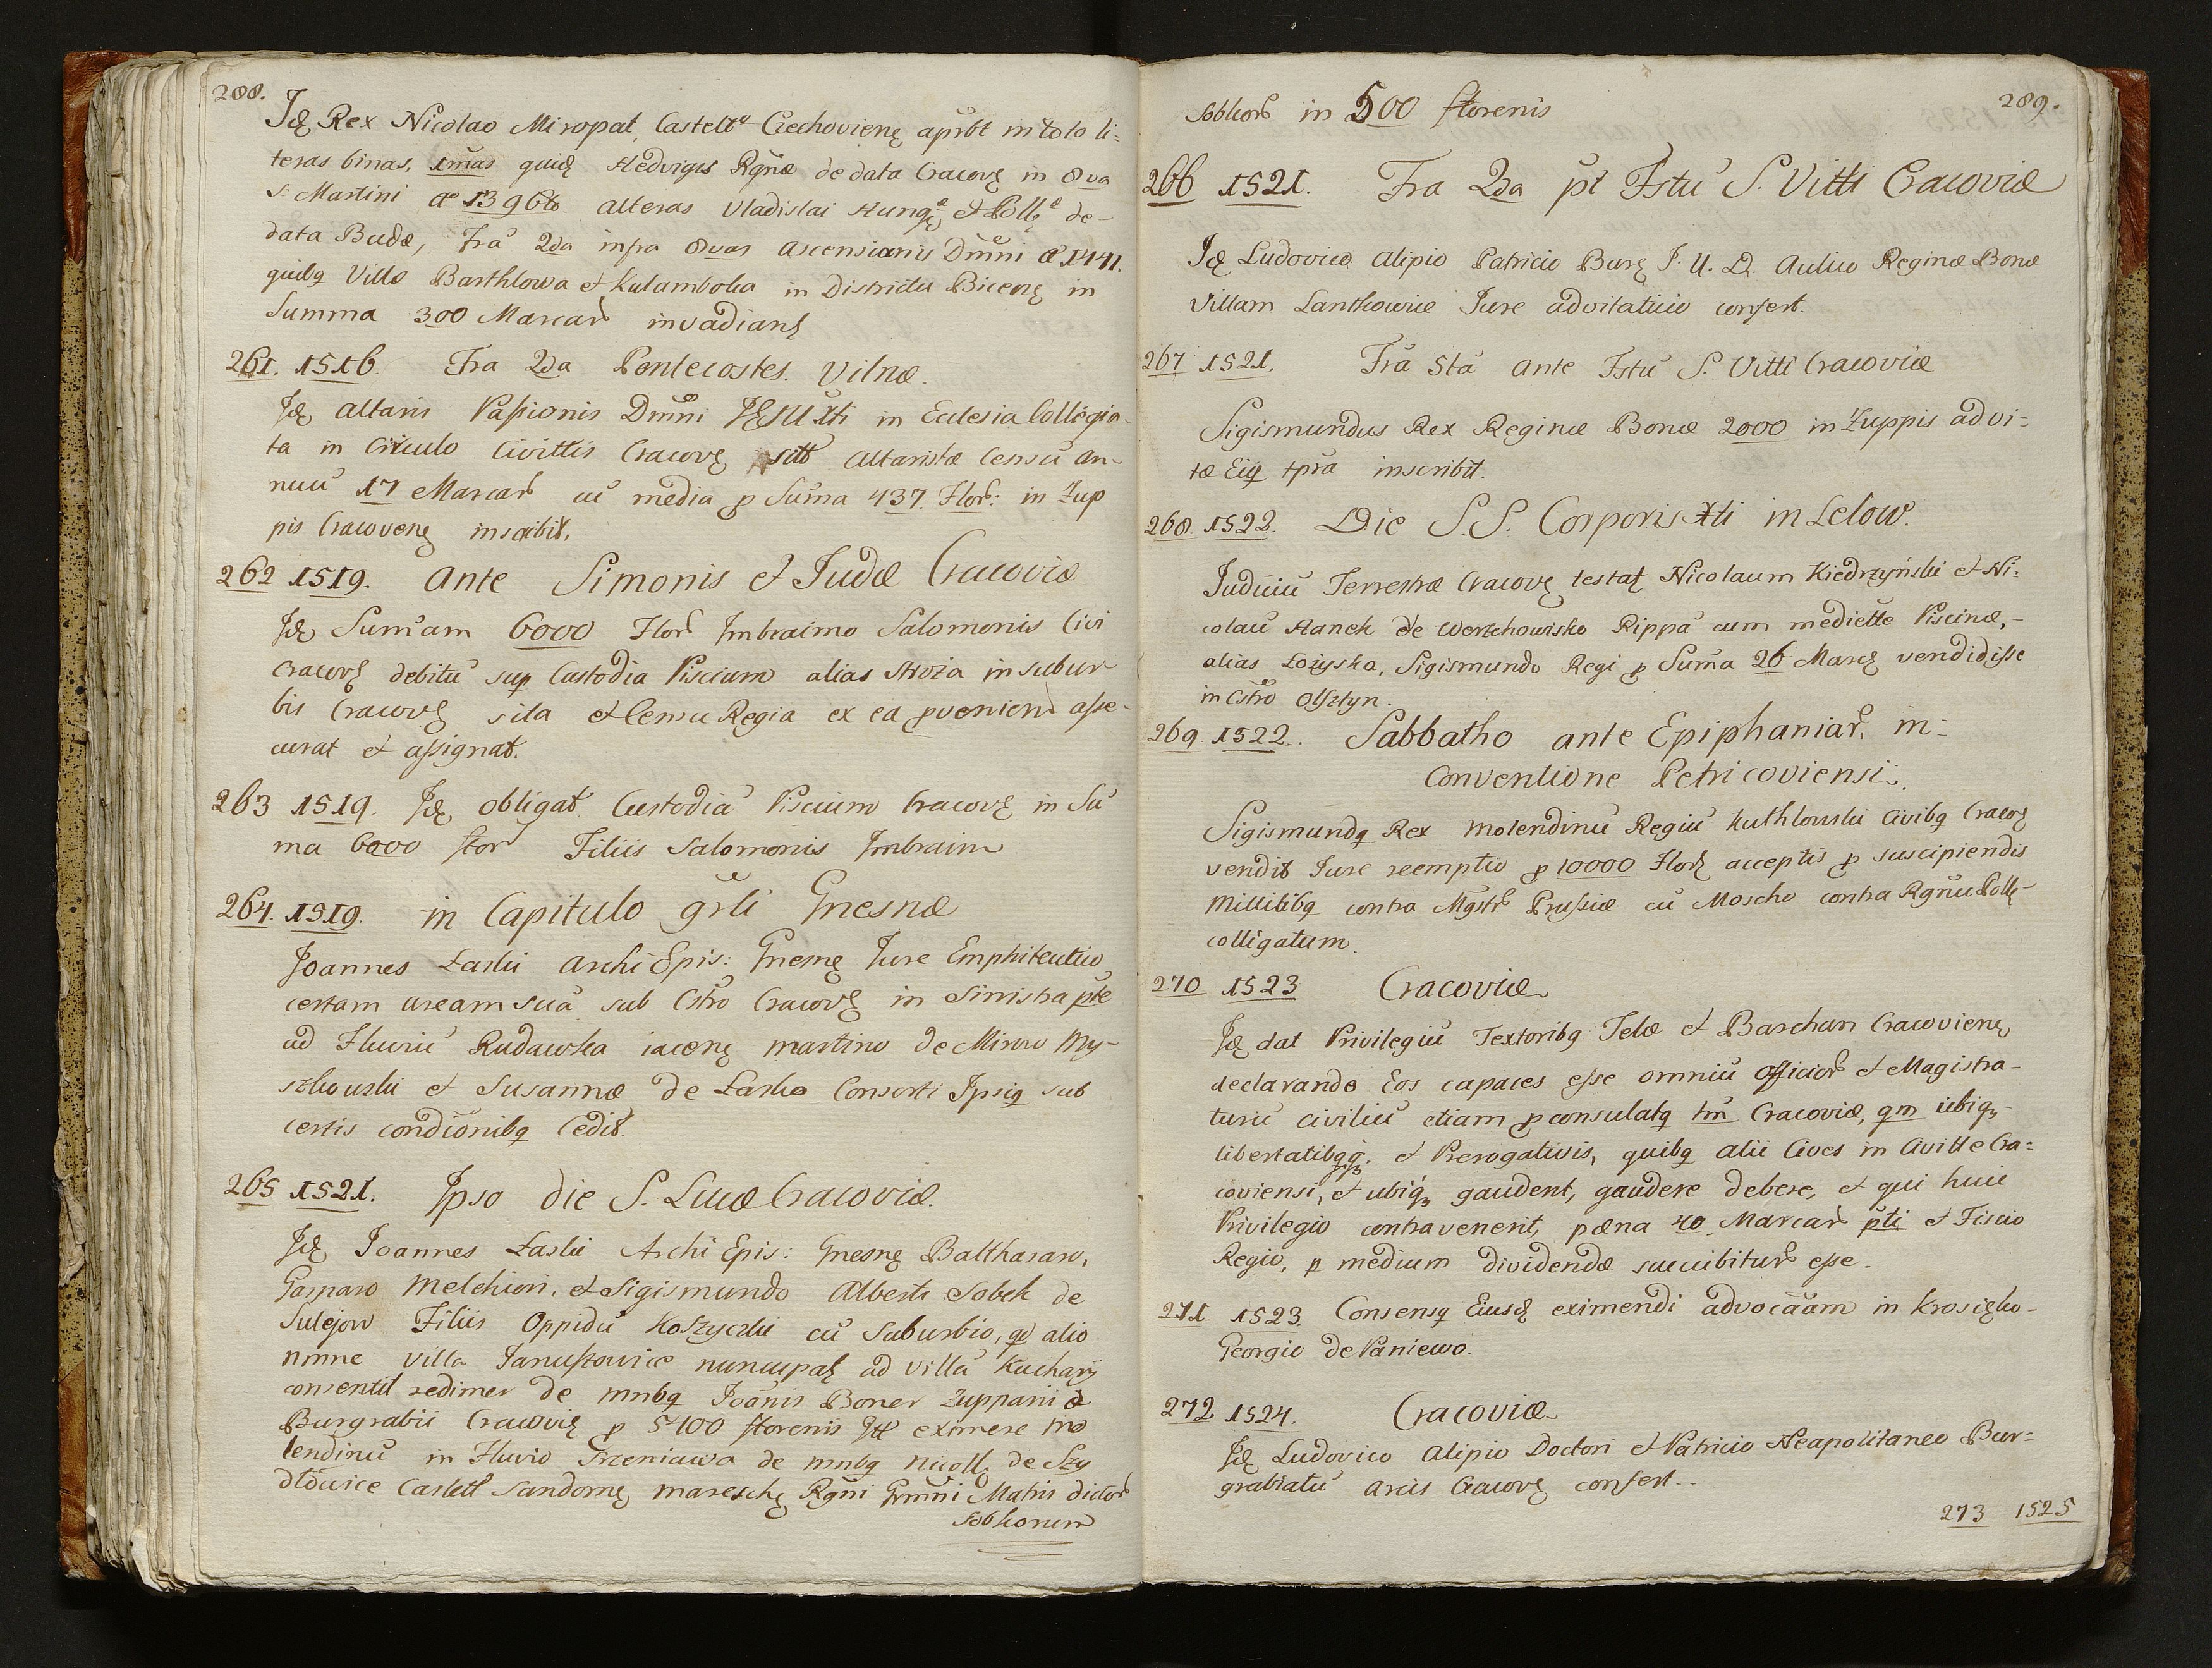 288.
Jdę Rex Nicolao Miropat, Castellō Czechovienę apr̄bt in toto li=
teras binas, 1mas quidę Hedvigis Rgnæ de data Cracovę in 8va
S: Martini ao 1396to alteras Vladislai Hungę et Pollę de-
data Budæ, Fra 2da infra 8vas ascensionis Dm̄ni ao 1441.
quibq Villæ Barthlowa et Kulambolka in Districtu Biecenę in
Summa 300 Marcar invadianę
261. 1516. Fra 2da Pentecostes. Vilnæ.
Jdę altaris Passionis Dm̄ni JESU Xti in Ecclesia Collegia-
ta in Circulo Civittis Cracovę sitt Altaristæ Censū an-
nuū 17 Marcar cū media p Sūma 437. Flor: in Zup
pis Cracovienę inscribit.
262 1519. Ante Simonis et Judæ Cracoviæ
Jdę Sum̄am 6000 Flor Jmbraimo Salomonis Civi
Cracovę debitū sup Custodia Piscium alias Stroża in subur
bis Cracovę sita et Censu Regia ex ea pveniend asse-
curat et assignat.
263 1519. Jdę obligat Custodiā Piscium Cracovę in Sū
ma 6000 flor Filiis Salomonis Jmbraim
264. 1519. in Capitulo gr̄li Gnesnæ
Joannes Łaski Archi Epis: Gnesnę Jure Emphiteutico
certam aream suā sub Cstro Cracovę in Sinistra pte
ad Fluviū Rudawka iacenę martino de Mirow My-
szkowski et Susannæ de Łasko Consorti Jpsiq sub
certis condiōnibq Cedit.
265 1521. Jpso die S. Lucæ Cracoviæ.
Jdę Joannes Łaski Archi Epis: Gnesnę Balthasaro,
Gasparo Melchiori, et Sigismundo Alberti Sobek de
Sulejow Filiis Oppidū Koszyczki cū Suburbio, qd alio
nmne Villa Januszowice nuncupatę ad villā Kucharÿ
consentit redimer de mnbq Joānis Boner Zupparii &
Burgrabii Cracovię p 5100 florenis Jtt eximere mo
lendinū in Fluvio Srzeniawa de mnbq Nicollę de Szy
dłowice Castell Sandomę maresche Rgni Grm̄ni Matris dictor
Sobkorum
289.
Sobkor in 500 florenis
266 1521. Fra 2da pt Fstū S. Vitti Cracoviæ
Jdę Ludovico Alipio Patricio Barę J. U. D. Aulico Reginæ Bonæ
Villam Lantkowice Jure advitalitio confert.
267 1521. Fra 5tā ante Fstū S. Vitti Cracoviæ
Sigismundus Rex Reginæ Bonæ 2000 in Zuppis ad vi=
tæ Eiq tp̄ra inscribit.
268. 1522. Die S.S. Corporis Xti in Lelow.
Judiciū Terrestræ Cracovę testatę Nicolaum Kiedrzyński et Ni=
colaū Hanek de Wierzchowisko Rippā cum mediette Piscinæ,-
alias Łożyska, Sigismundo Regi p Sūma 26 Marcę vendidisse
in Cstro Olsztyn.
269. 1522. Sabbatho ante Epiphaniar. in=
Conventione Petricoviensi.
Sigismundq Rex Molendinū Regiū Kuthlowski Civibq Cracovę
vendit Jure reemptio p 10000 Florę acceptis p suscipiendis
Militibq contra Mgstr Prussiæ cū Moscho contra Rgnū Pollę-
colligatum.
270 1523 Cracoviæ
Jdę dat Privilegiū Textoribq Telæ et Barchan Cracovienę
declarando Eos capaces esse omniū officior et Magistra-
turū civiliū etiam pconsulatq tm̄ Cracoviæ, qm ubiq-
libertatibqq. et Prerogativis, quibq alii Cives in Civitte Cra=
coviensi, et ubiq gaudent, gaudere debere, et qui huic
Privilegio contravenerit, pæna 40. Marcar pti et Fiscio
Regio, p medium dividendæ succubitur esse.
271 1523. Consensq Eiusdę eximendi advocāam in Krosięko-
Georgio de Paniewo.
272 1524. Cracoviæ
Jdę Ludovico Alipio Doctori et Patricio Neapolitaneo Bur=
grabiatū Arcis Cracovę confert..
273 1525